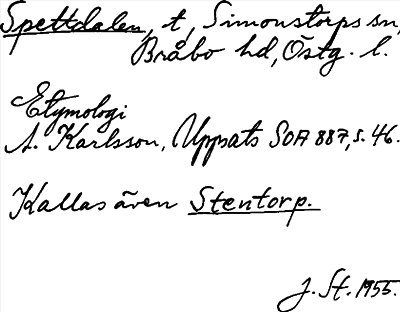 Spettdalen, t, Simonstorps sn,
Bråbo hd, Östg. l.
Etymologi
A. Karlsson, Uppsats SOA 887, s. 46.
Kallas även Stentorp.
J. St. 1955.